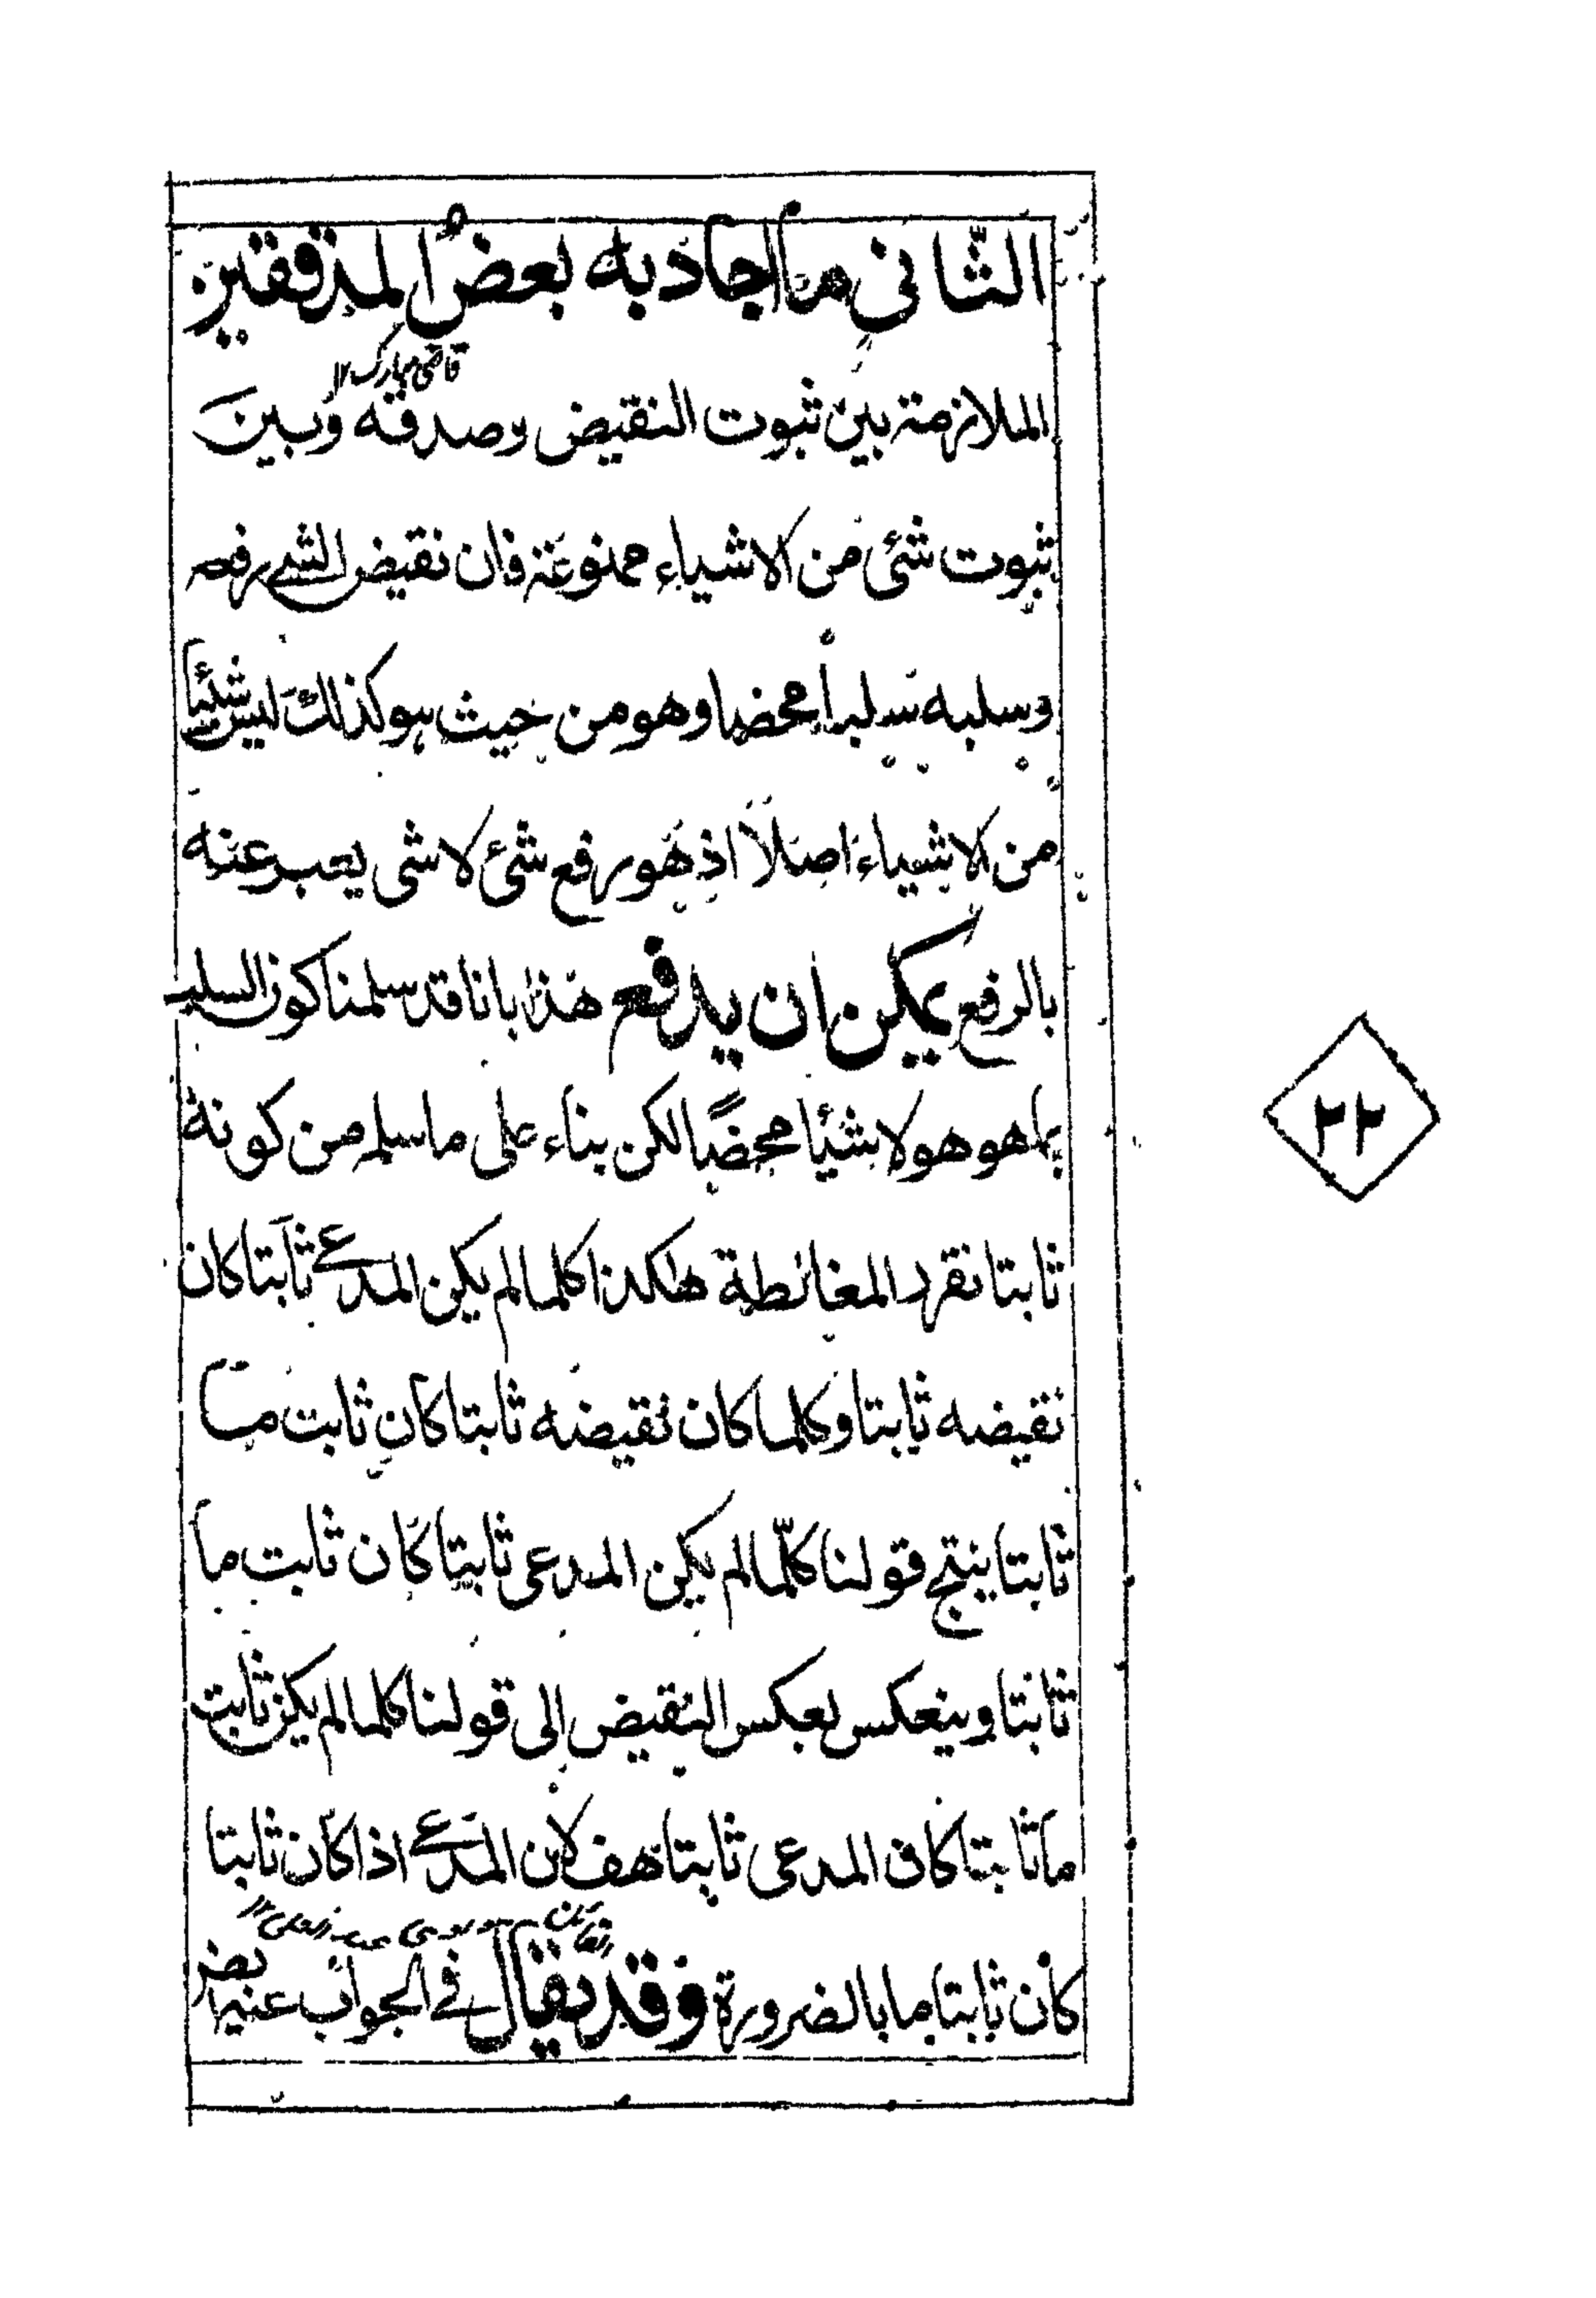 الثانی ما اجاد به بعضُ المدققین
قاضی مبارک ۱۲
الملازمة بین ثبوت النقیض وصدقه وَبینَ
ثبوت شئی من الاشیاء ممنوعة فان نقیض الشے رفعه
وسلبه سلباً محضا وهو من حیث هو کذلك لیس شئیا
من الاشیاء اصلا اذ هو رفع شئ لا شی یعبر عنه
بالرفع یمکن ان یدفع هذا بانا قد سلمنا کون السلب
بما هو هو لا شئیا محضًا لکن بناء علی ما سلم من کونه
ثابتا نقرر المغالطة هکذا کلما لم یکن المدعے ثابتا کان
نقیضه ثابتا وکلما کان نقیضه ثابتا کان ثابت ما
ثابتا ینتج قولنا کلّما لم یکن المدعی ثابتا کان ثابت ما
ثابتا وینعکس بعکس النقیض الی قولنا کلما لم یکن ثابت
ما ثابتا کان المدعی ثابتا هف لان المدعے اذا کان ثابتا
کان ثابتا ما بالضرورة وقد یقال فی الجواب عنه
۲۲